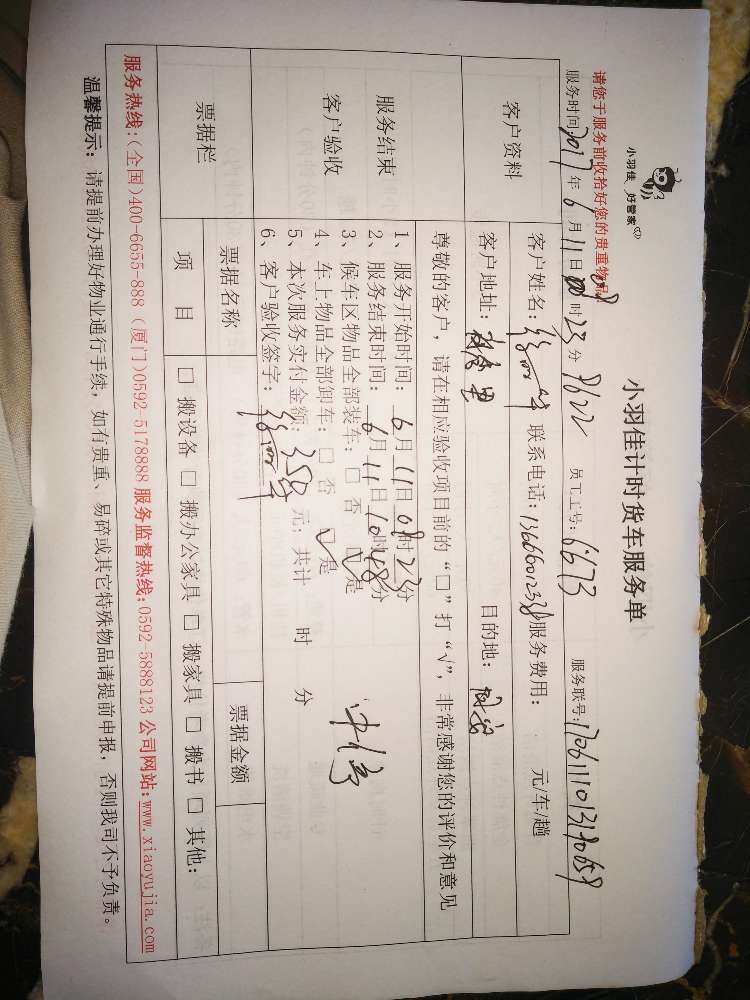 小羽佳 好管家
小羽佳计时货车服务单
请您于服务前收拾好您的贵重物品
服务时间:2017年6月11日08时23分 员工工号:6673 服务联号:
客户资料
客户姓名: 联系电话: 服务费用: 元/车/趟
客户地址: 目的地:
服务结束
客户验收
尊敬的客户，请在相应验收项目前的“□”打“√”，非常感谢您的评价和意见
1、服务开始时间: 6月11日08时23分
2、服务结束时间: 6月11日10时48分
3、候车区物品全部装车: □ 否 □√是
4、车上物品全部卸车: □ 否 □√是
5、本次服务实付金额: 350 元; 共计 时 分
6、客户验收签字:
票据栏
票据名称 票据金额
项 目 □ 搬设备 □ 搬办公家具 □ 搬家具 □ 搬书 □ 其他:
服务热线:(全国)400-6655-888 (厦门)0592-5178888 服务监督热线:0592-5888123 公司网站:www.xiaoyujia.com
温馨提示: 请提前办理好物业通行手续，如有贵重、易碎或其它特殊物品请提前申报，否则我司不予负责。